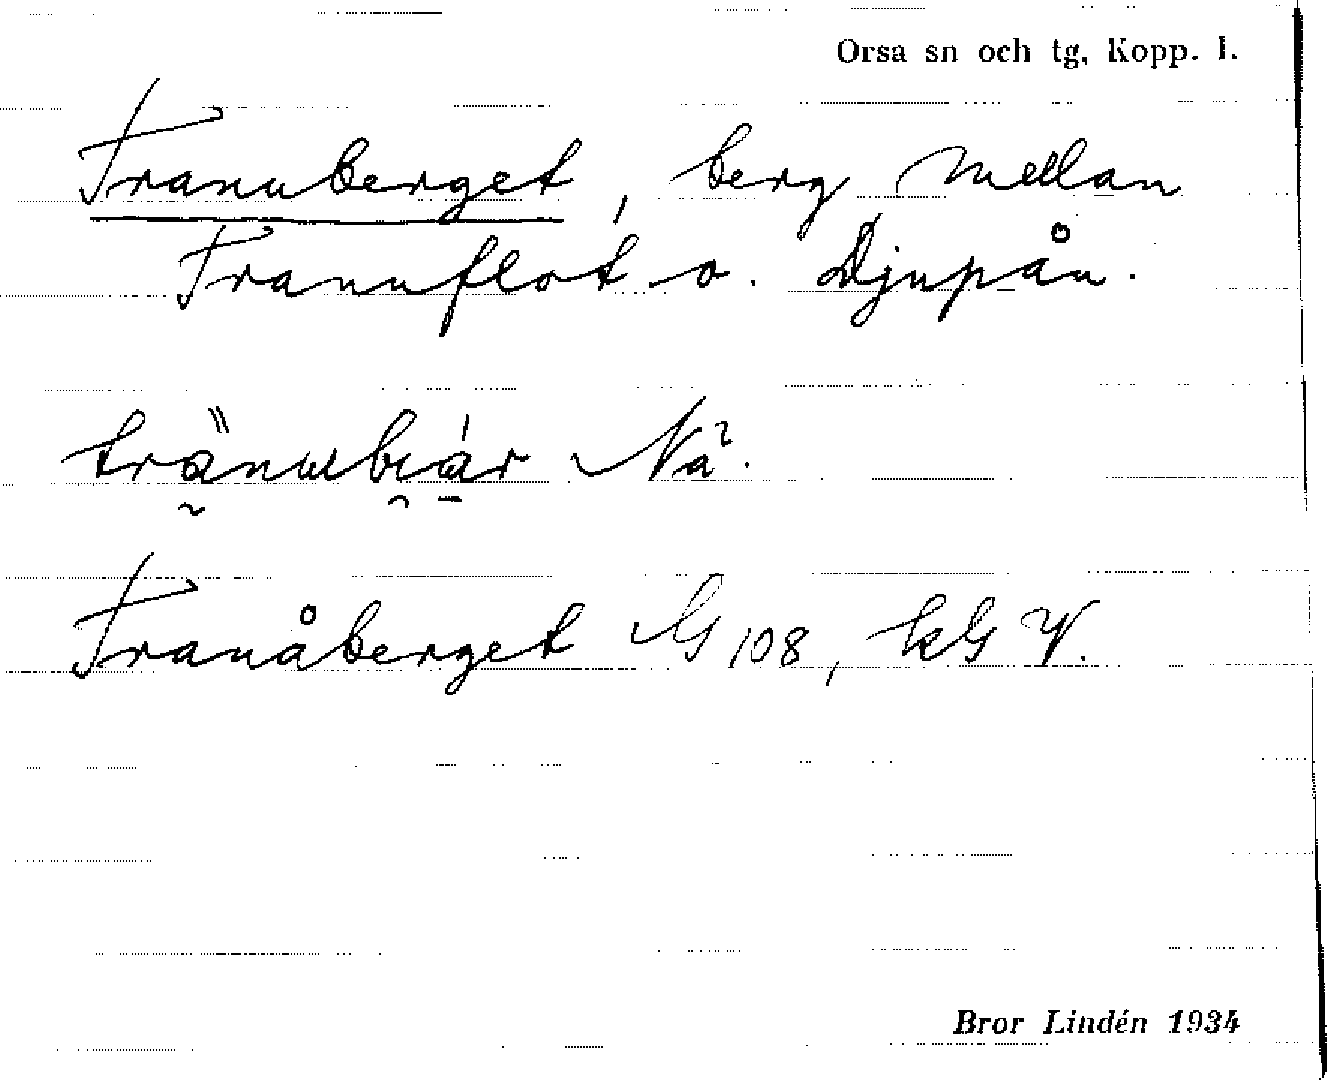 Orsa sn och tg, Kopp. l.
Tranuberget, berg mellan
Tranuflot o. Djupån.
Nä².
Tranåberget G 108, kG V.
Bror Lindén 1934